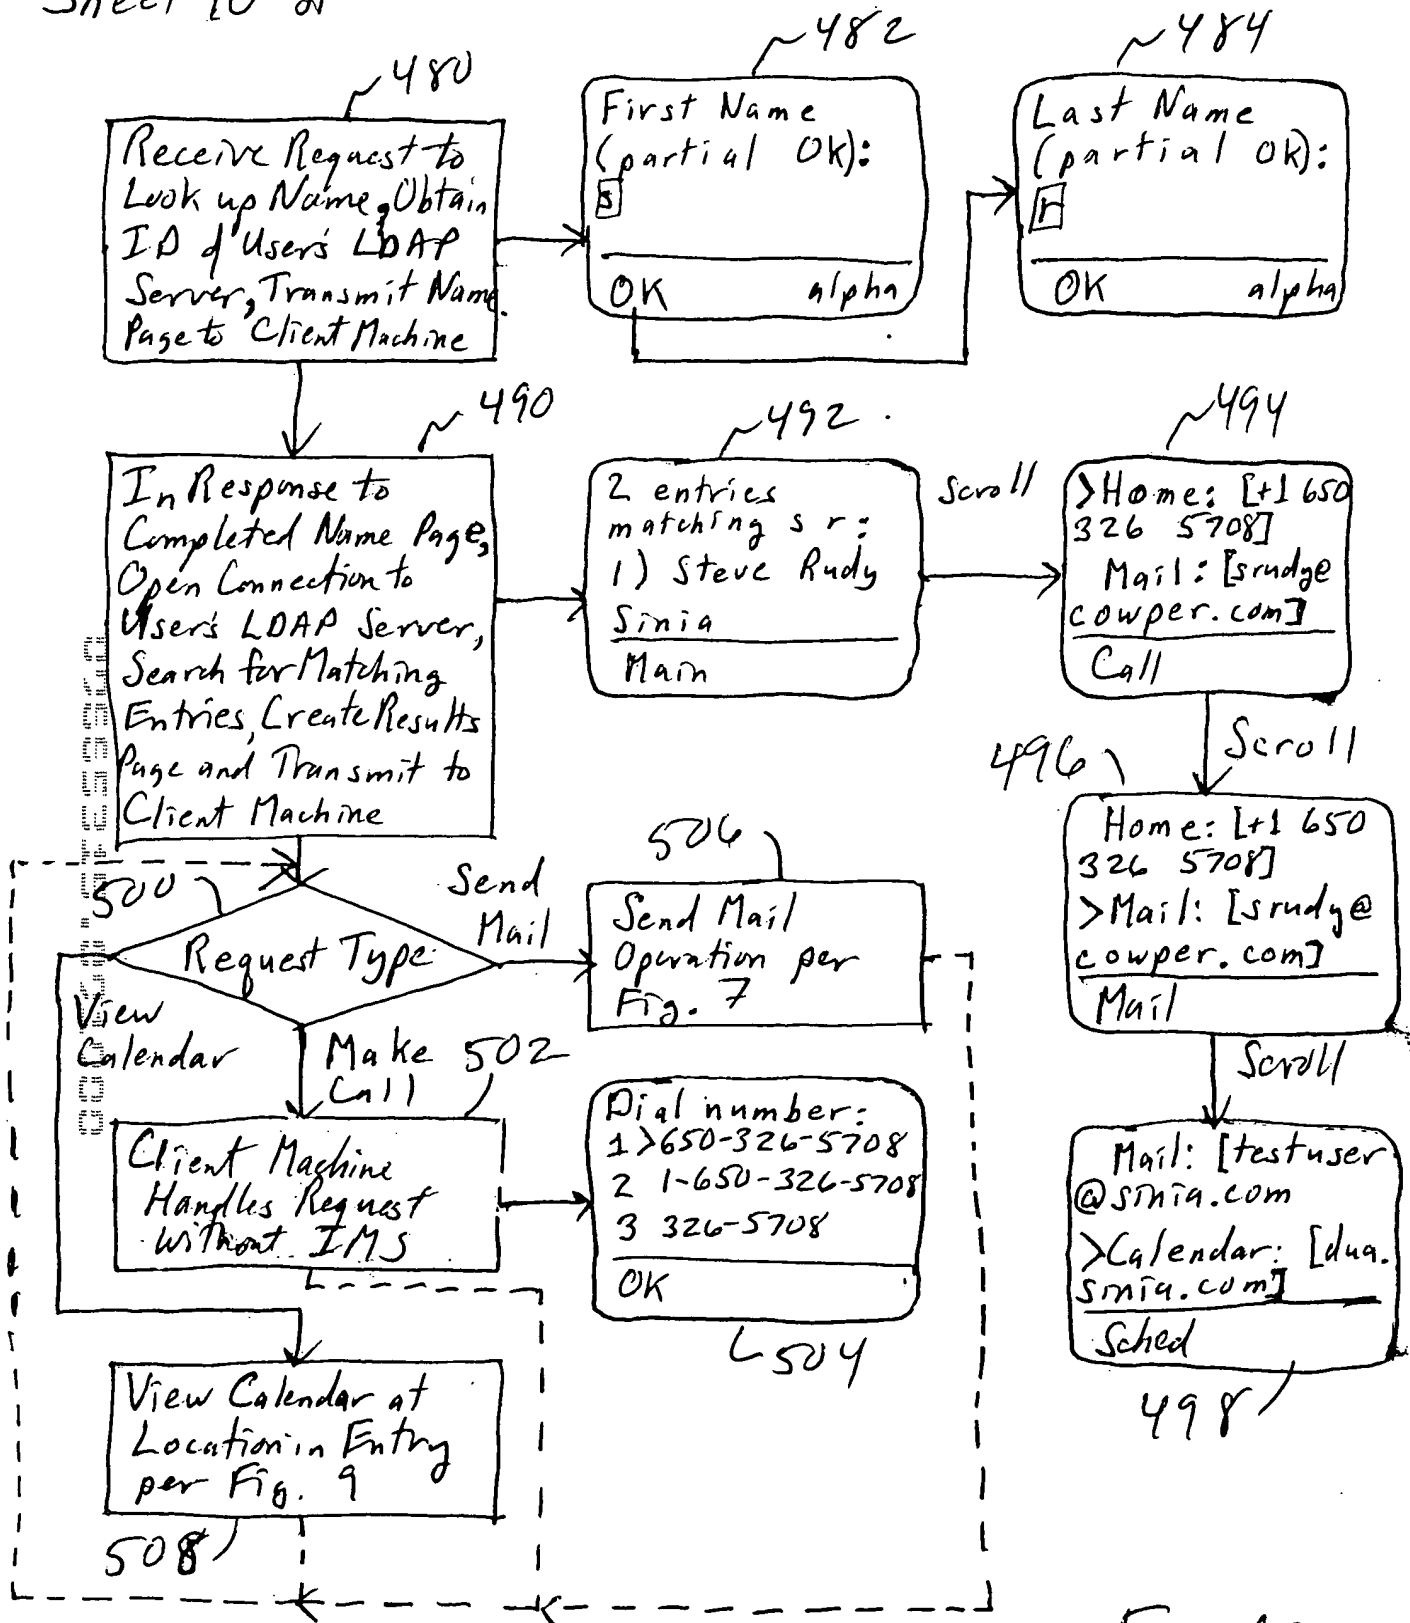 Sheet 10 of
480
Receive Request to
Look up Name, Obtain
ID of User's LDAP
Server, Transmit Name
Page to Client Machine
482
First Name
(partial Ok):
s
OK alpha
484
Last Name
(partial Ok):
r
OK alpha
490
In Response to
Completed Name Page,
Open Connection to
User's LDAP Server,
Search for Matching
Entries, Create Results
Page and Transmit to
Client Machine
492
2 entries
matching s r:
1) Steve Rudy
Sinia
Main
Scroll
494
>Home: [+1 650
326 5708]
Mail: [srudy@
cowper.com]
Call
Scroll
496
Home: [+1 650
326 5708]
>Mail: [srudy@
cowper.com]
Mail
Scroll
Mail: [testuser
@sinia.com
>Calendar: [dua.
sinia.com]
Sched
498
500
Request Type
Send
Mail
506
Send Mail
Operation per
Fig. 7
View
Calendar
Make
Call
502
Client Machine
Handles Request
without IMS
Dial number:
1 >650-326-5708
2 1-650-326-5708
3 326-5708
OK
504
View Calendar at
Location in Entry
per Fig. 9
508